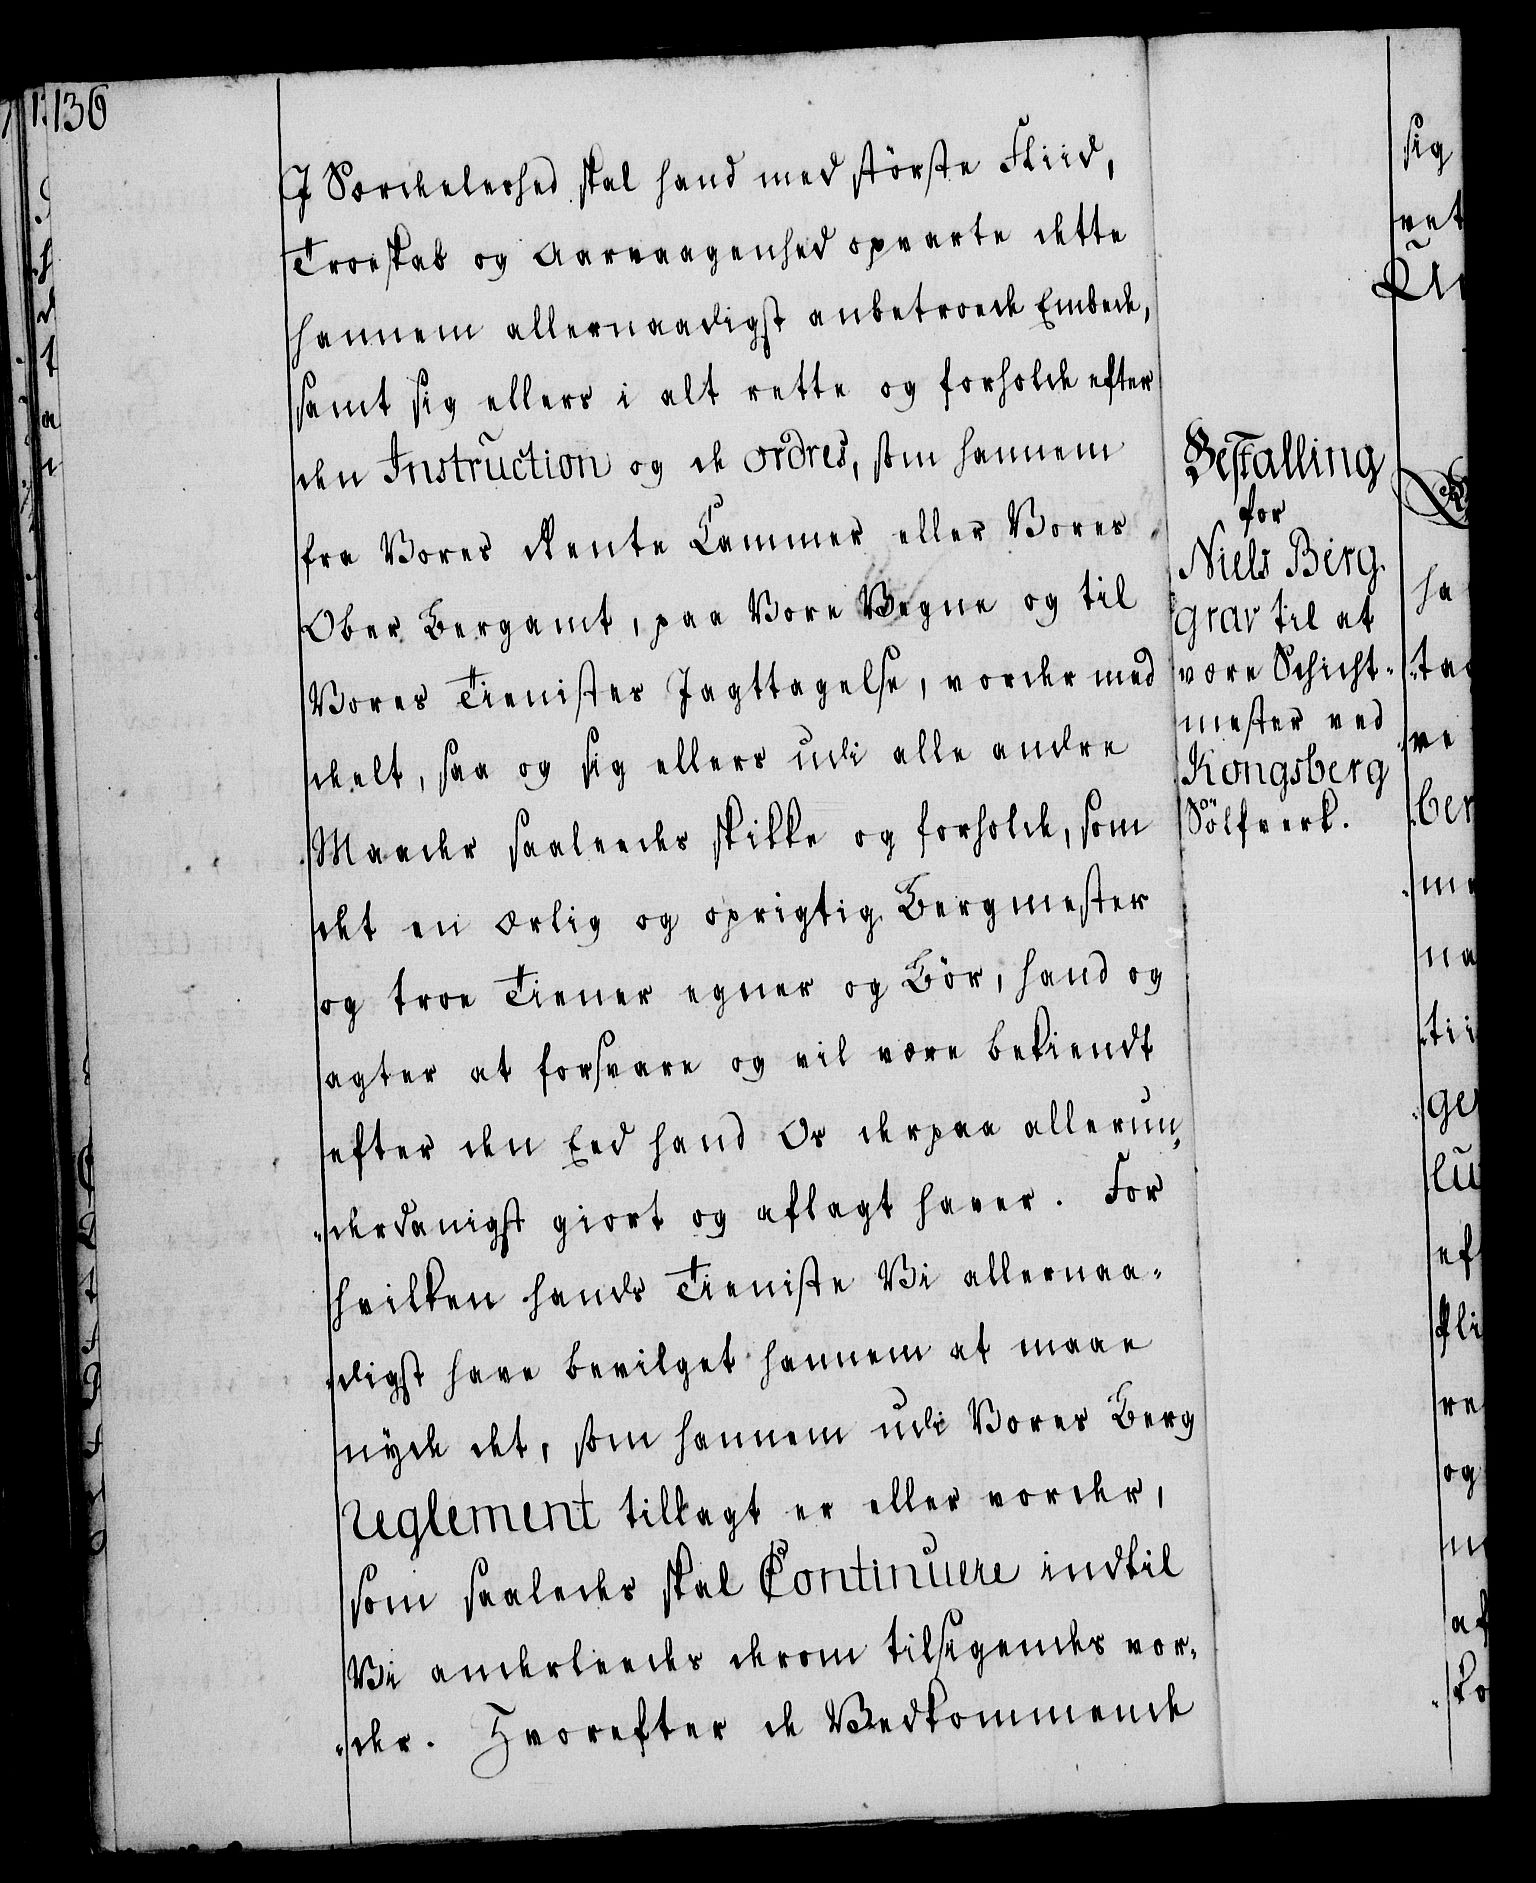 136
I Særdeleshed skal hand med störste Fliid,
Troeskab og Aarvaagenhed opvarte dette
hannem allernaadigst anbetroede Embede,
samt sig ellers i alt rette og forholde efter
den Instruction og de ordres, som hannem
fra Vores Rente Cammer eller Vores
Ober Bergamt, paa Vore Vegne og til
Vores Tienistes Jagttagelse, vorder med
deelt, saa og sig ellers udi alle andre
Maader saaleedes skikke og forholde, som
det en ærlig og oprigtig Bergmester
og troe Tiener egner og Bör, hand og
agter at forsvare og vil være bekiendt
efter den Eed hand Os derpaa allerun,,
„derdanigst giort og aflagt haver. For
hvilken hands Tieniste Vi allernaa-
„digst have bevilget hannem at maae
nyde det, som hannem udi Vores Berg
Reglement tillagt er eller vorder,
som saaledes skal Continuere indtil
Vi anderleedes derom tilsigendes vor-
„der. Hvorefter de Vedkommende
Bestalling
for
Niels Berg-
grav til at
være Schicht-
mester ved
Kongsberg
Sölfverk.
sig